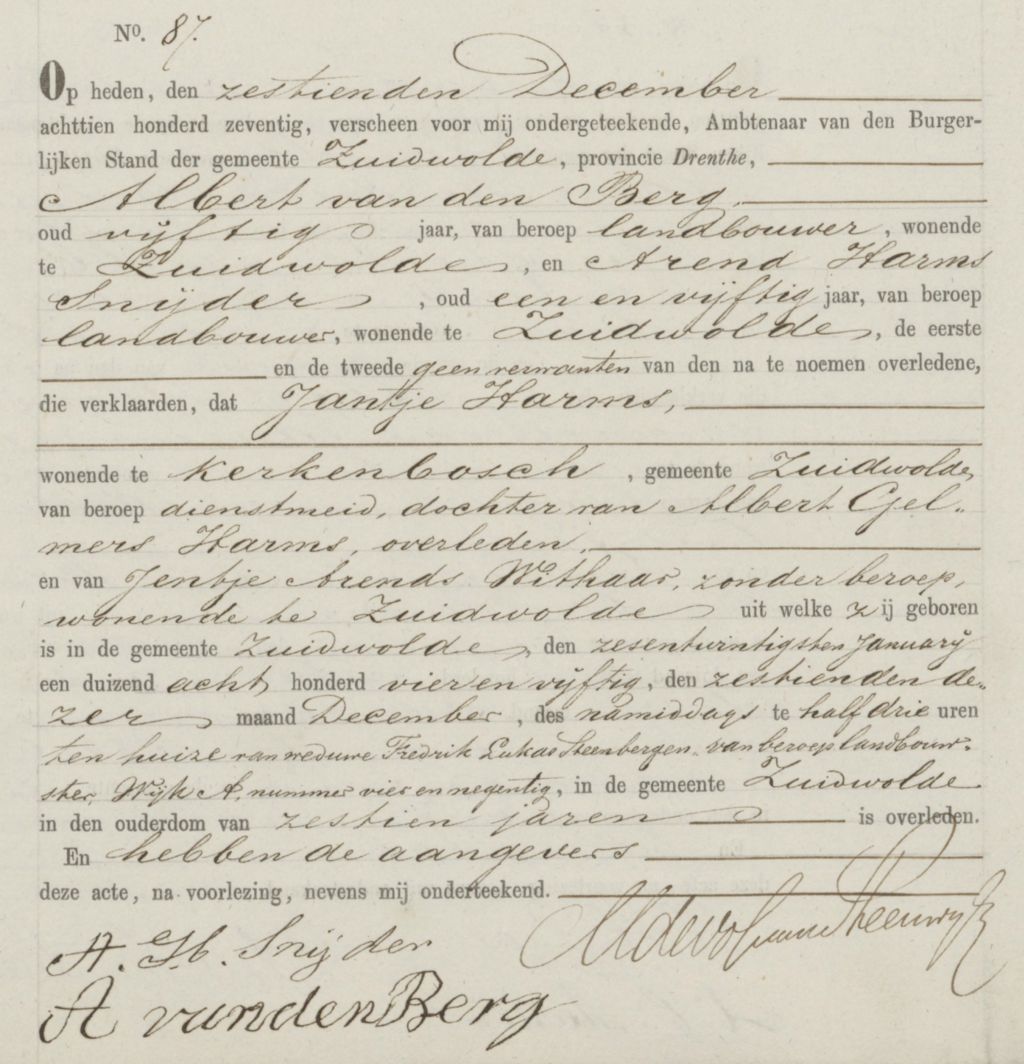 No. 87.
Op heden, den zestienden December
achttien honderd zeventig, verscheen voor mij ondergeteekende, Ambtenaar van den Burger-
lijken Stand der gemeente Zuidwolde, provincie Drenthe,
Albert van den Berg,
oud vijftig jaar, van beroep landbouwer, wonende
te Zuidwolde, en Arend Harms
Snijder, oud een en vijftig jaar, van beroep
landbouwer, wonende te Zuidwolde, de eerste
en de tweede geen verwanten van den na te noemen overledene,
die verklaarden, dat Jantje Harms,
wonende te Kerkenbosch, gemeente Zuidwolde,
van beroep dienstmeid, dochter van Albert Gel-
mers Harms, overleden,
en van Jentje Arends Withaar, zonder beroep,
wonende te Zuidwolde uit welke zij geboren
is in de gemeente Zuidwolde, den zesentwintigsten January
een duizend acht honderd vier en vijftig, den zestienden de-
zer maand December, des namiddags te half drie uren
ten huize van weduwe Fredrik Lukas Steenbergen, van beroep landbouw-
ster, Wijk A, nummer vier en negentig, in de gemeente Zuidwolde
in den ouderdom van zestien jaren is overleden.
En hebben de aangevers
deze acte, na voorlezing, nevens mij onderteekend.
A. H. Snijder
A van den Berg